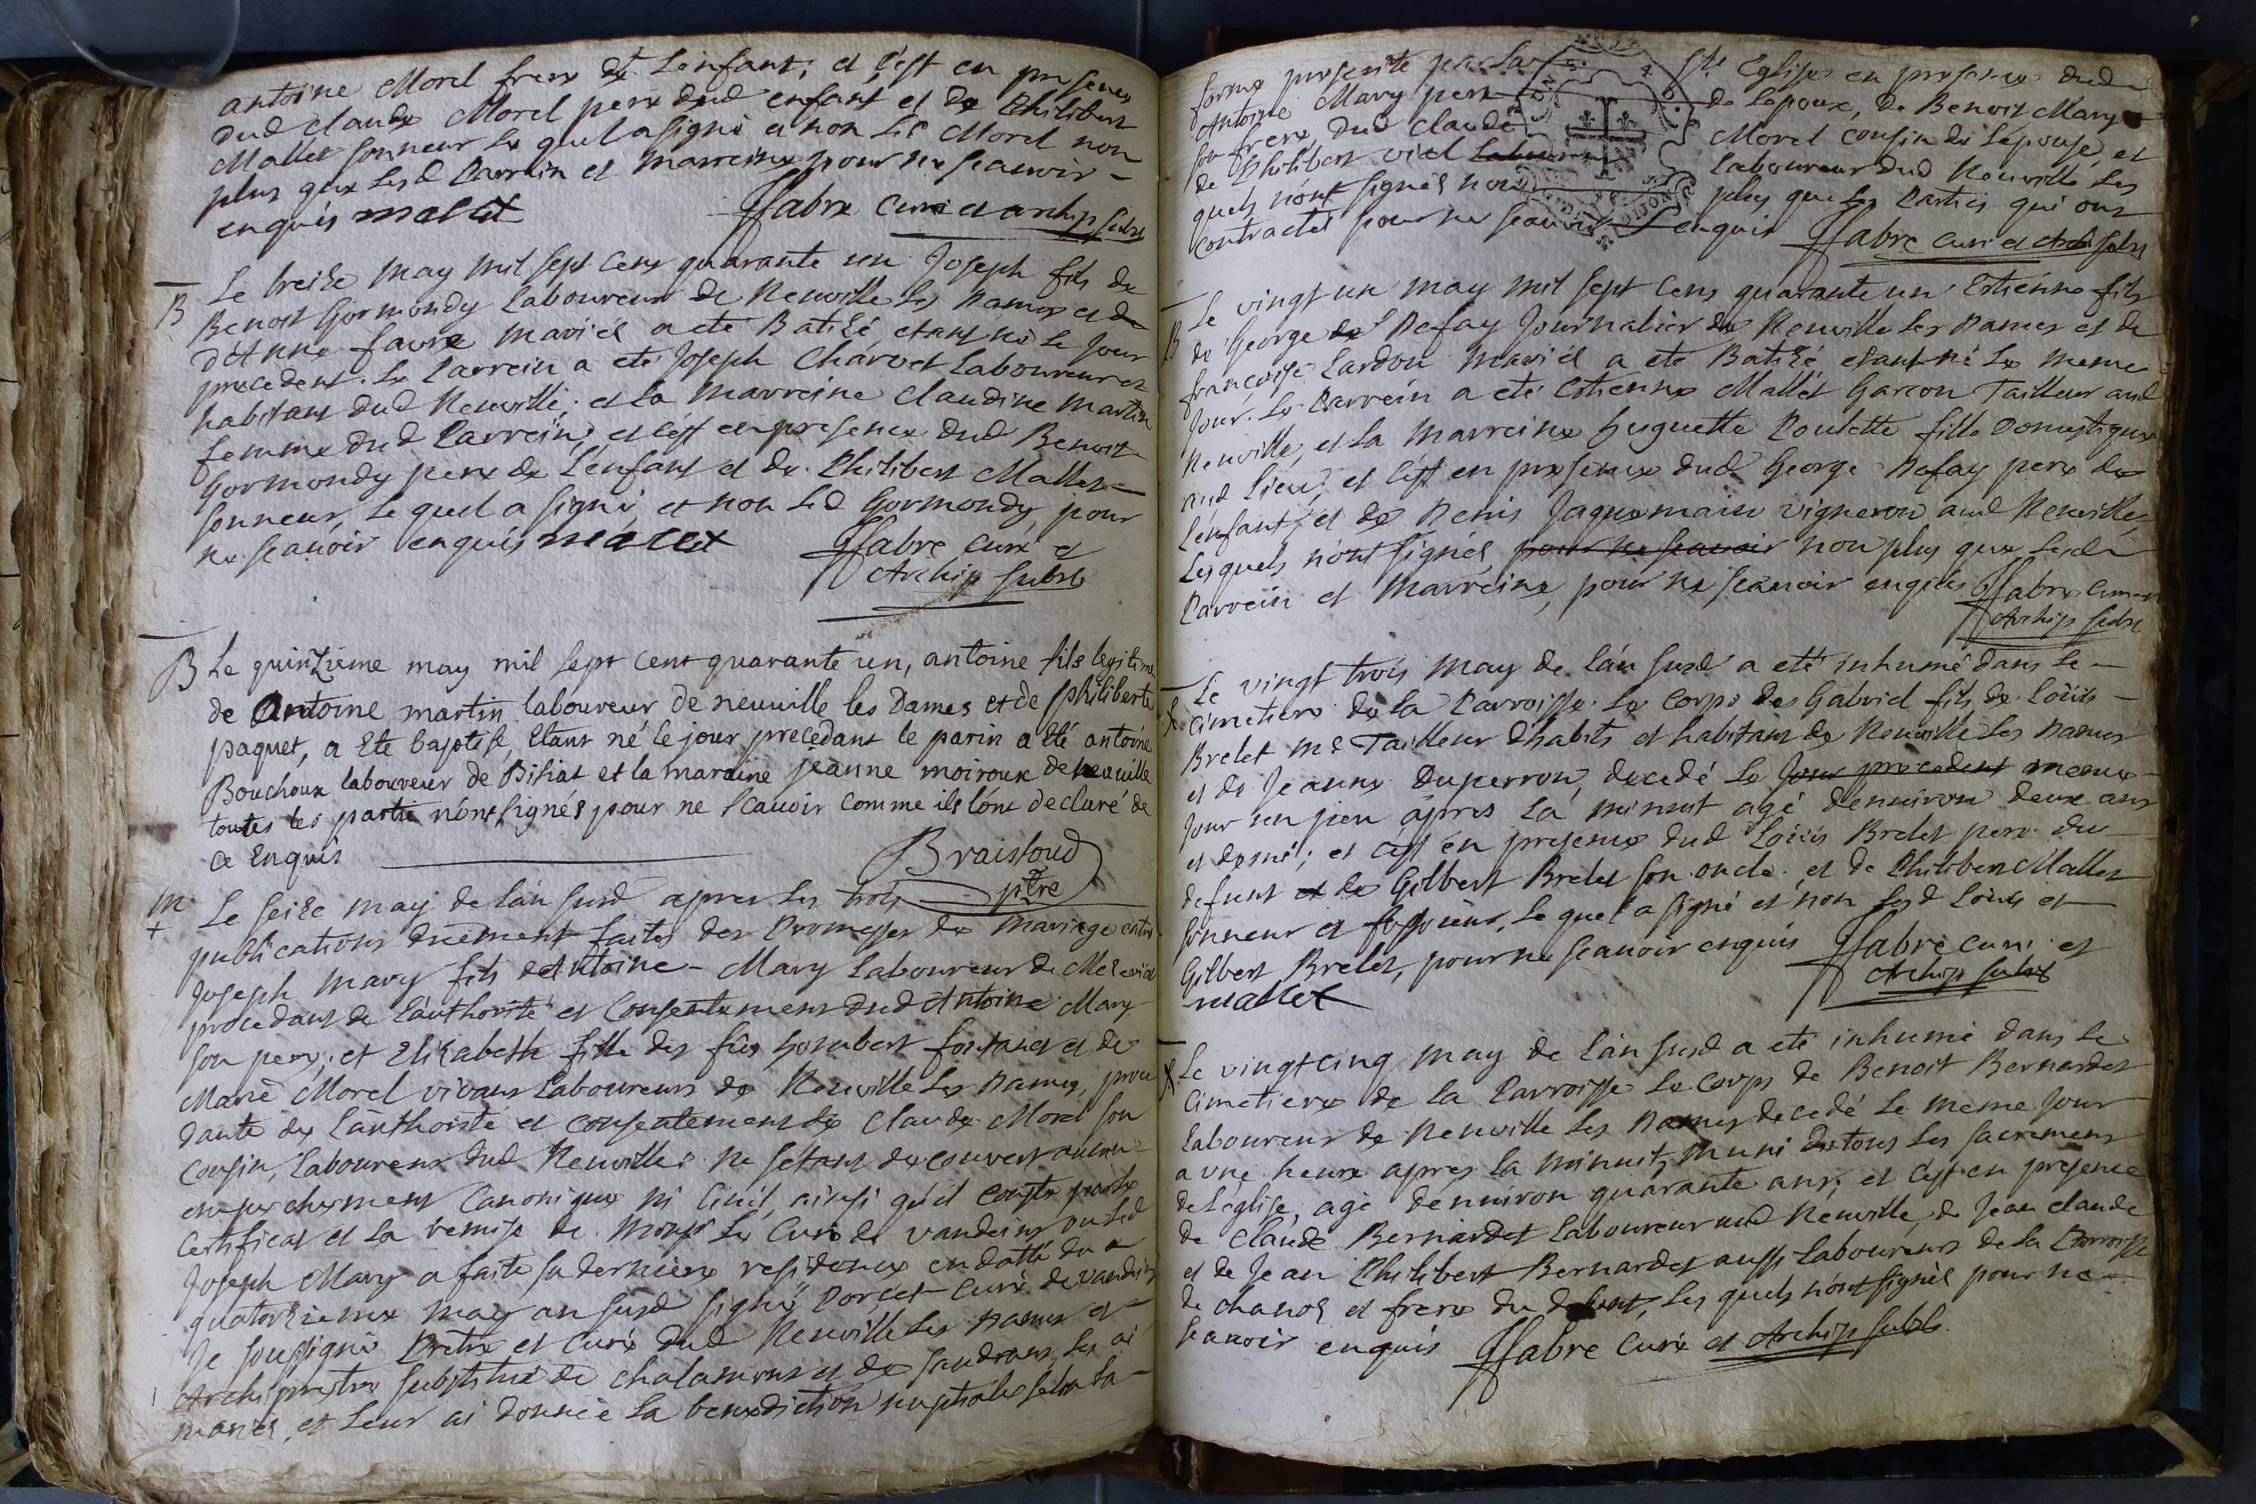 antoine Morel frere de L'enfant; et c'est en presence
dud claude Morel pere dud enfant et de Philibert
Mallet sonneur le quel a signé et non led Morel non
plus que lesd Parrein et Marreine pour ne scauoir
enquis mallet Ffabre curé et archip subst
B
Le treize May mil sept cens quarante un Joseph fils de
Benoit Gormondy Laboureur de Neuville les Dames et de
d'Anne favre mariés a eté Batizé etant né le jour
precedent. Le Parrein a eté Joseph Charvet Laboureur et
habitant dud Neuville; et la Marreine Claudine Martin
femme dud Parrein; et c'est en presence dud Benoit
Gormondy pere de L'enfant et de Philibert Mallet
sonneur, le quel a signé, et non led Gormondy, pour
ne scauoir enquis mallet Ffabre curé et
Archip subst
B Le quinzieme may mil sept cent quarante un, antoine fils legitime
de Antoine martin laboureur de neuuille les Dames et de philiberte
paquet, a eté baptisé, etant né le jour precedant le parin a eté antoine
Bouchoux laboureur de Bisiat et la maraine jeanne moiroux de neuuille
toutes les partie n'ont signés pour ne scauoir comme ils l'ont declaré de
ce Enquis Braistoud
ptre
M
+
Le seize may de l'an susd apres les trois
publications duëment faites des Promesses de Mariage entre
Joseph Mary fils d'Antoine Mary Laboureur de Mezeriat
procedant de l'authorité et consentement dud Antoine Mary
son pere; et Elizabeth fille des fûs homebert fontanet et de
Marie Morel vivans Laboureurs de Neuville les Dames, proce
dante de l'authorité et consentement de Claude Morel son
cousin, Laboureur dud Neuville; ne s'etant decouvert aucun
empechement Canonique ni Civil, ainsi qu'il conste par le
certificat et la remise de Monsr le Curé de vandeins ou led
Joseph Mary a faite sa derniere residence en datte du
quatorzieme May an susd signé Porçet Curé de vandeins
Je soussigné Pretre et Curé dud Neuville les Dames et
Archipretre substitué de chalamont et de sandrans les ai
mariés, et leur ai donnée la benediction nuptiale selon la
forme presente par la Ste Eglise en presence dud
Antoine Mary pere de lepoux, de Benoit Mary
son frere dud Claude Morel cousin de l'epouse, et
de Philibert viel laboureur dud Neuville les
quels n'ont signés non plus que les Parties qui ont
contractés pour ne scauoir enquis Ffabre curé et Arch subst
B
Le vingt un may mil sept cens quarante un Estienne fils
de George Defay Journalier de Neuville les Dames et de
françoise Lardon mariés a eté Batizé etant né le meme
jour. Le Parrein a eté Estienne Mallet Garcon Tailleur aud
Neuville, et la Marreine huguette Poulette fille Domestique
aud lieu; et c'est en presence dud George Defay pere de
L'enfant, et de Denis Jaquemain vigneron aud Neuville
Lesquels n'ont signés pour ne scauoir non plus que lesd
Parrein et Marreine, pour ne scauoir enquis Ffabre curé et
Archip subst
Le vingt trois May de l'an susd a eté inhumé dans le
cimetiere de la Parroisse le corps de Gabriel fils de Loüis
Brelet Me Tailleur d'habits et habitant de Neuville les Dames
et de Jeanne Duperron, decedé le jour precedent meme
jour un peu apres la minuit agé d'enuiron deux ans
et demi; et c'est en presence dud Loüis Brelet pere du
defunt et de Gilbert Brelet son oncle, et de Philibert Mallet
sonneur et fossoieur, le quel a signé et non lesd Loüis et
Gilbert Brelet, pour ne scauoir enquis Ffabre curé et
mallet Archip subst
Le vingt cinq may de l'an susd a eté inhumé dans le
cimetiere de la Parroisse le corps de Benoit Bernardet
laboureur de Neuville les Dames decedé le meme jour
a une heure apres la minuit, muni de tous les sacremens
de l'eglise, agé d'enuiron quarante ans; et c'est en presence
de Claude Bernardet Laboureur aud Neuville, de Jean claude
et de Jean Philibert Bernardet aussi Laboureurs de la Parroisse
de chanoz et frere du defunt, les quels n'ont signés pour ne
scauoir enquis Ffabre curé et Archip subst